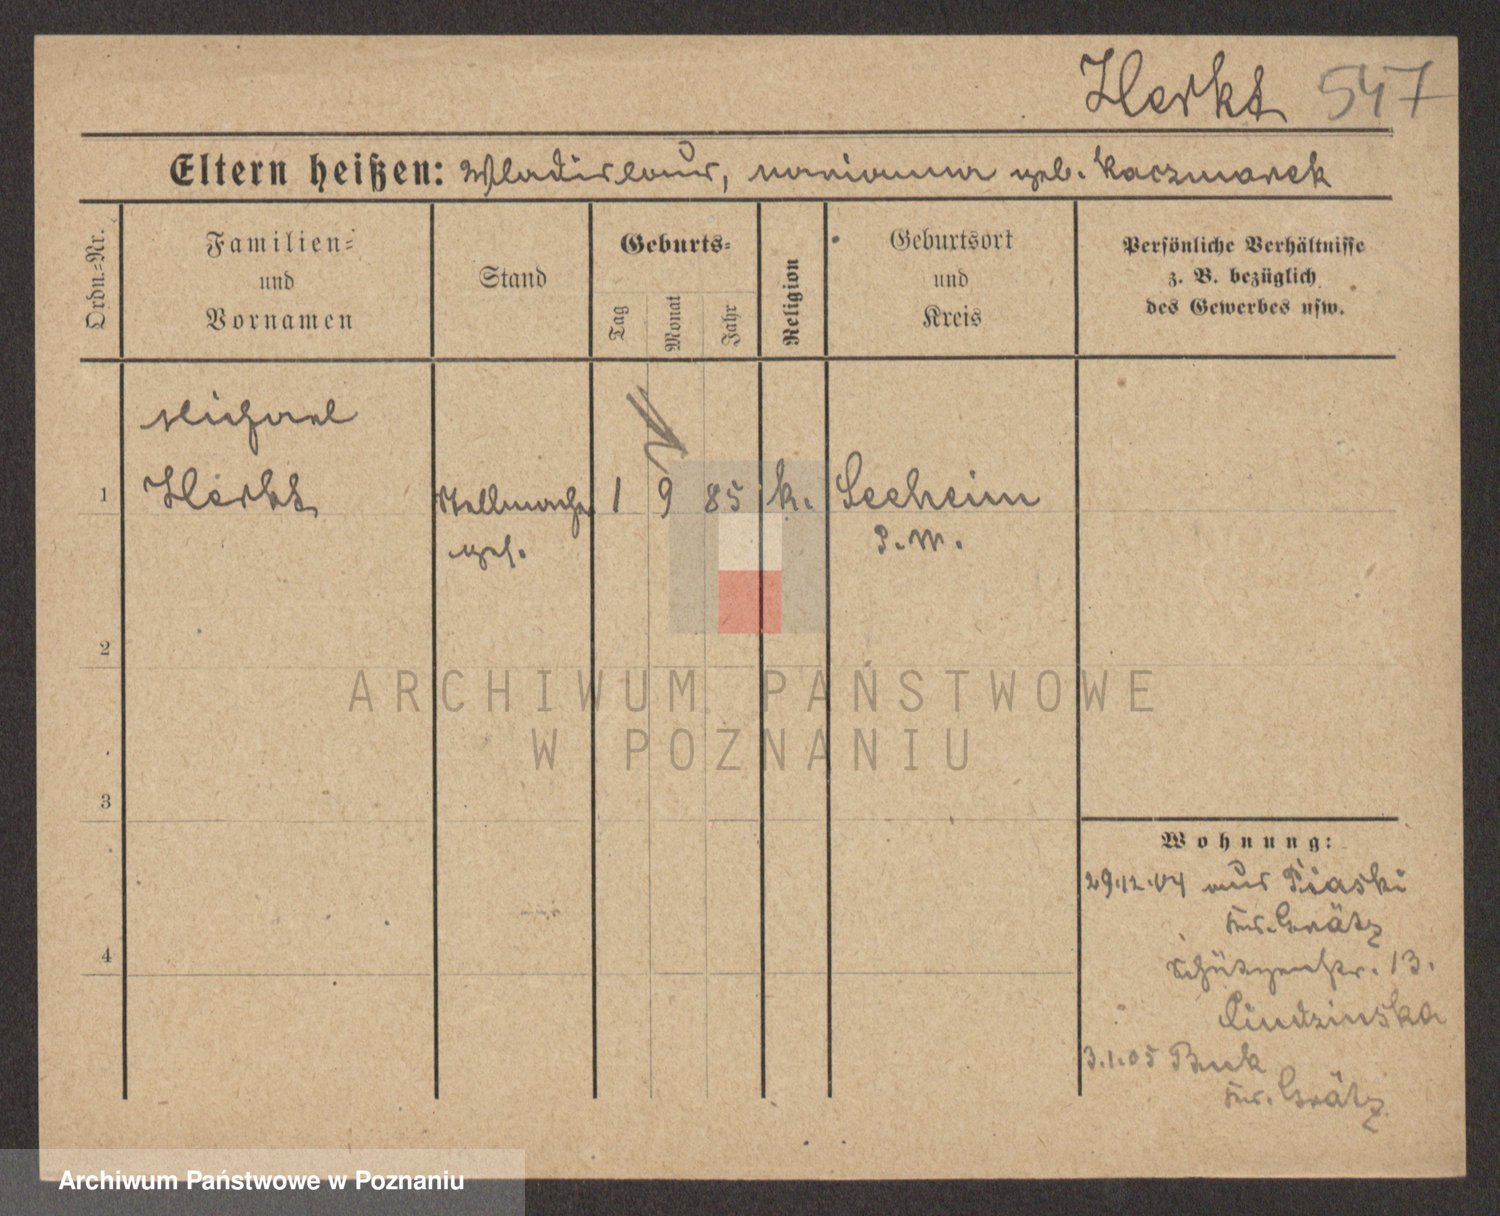 Herkt 547
Eltern heißen: Wladislaus, Marianna geb. Kaczmarek
Ordn.=Nr.
Familien=
und
Vornamen
Stand
Geburts=
Tag
Monat
Jahr
Religion
Geburtsort
und
Kreis
Persönliche Verhältnisse
z. B. bezüglich
des Gewerbes usw.
Michael
1 Herkt Stellmacher 1 9 85 k. Seeheim
ges. P. W.
2
3
4
Wohnung:
29.12.04 aus Piaski
Kr. Grätz
Schützenstr. 13.
3.1.05 Buk
Kr. Grätz
ARCHIWUM PAŃSTWOWE
W POZNANIU
Archiwum Państwowe w Poznaniu